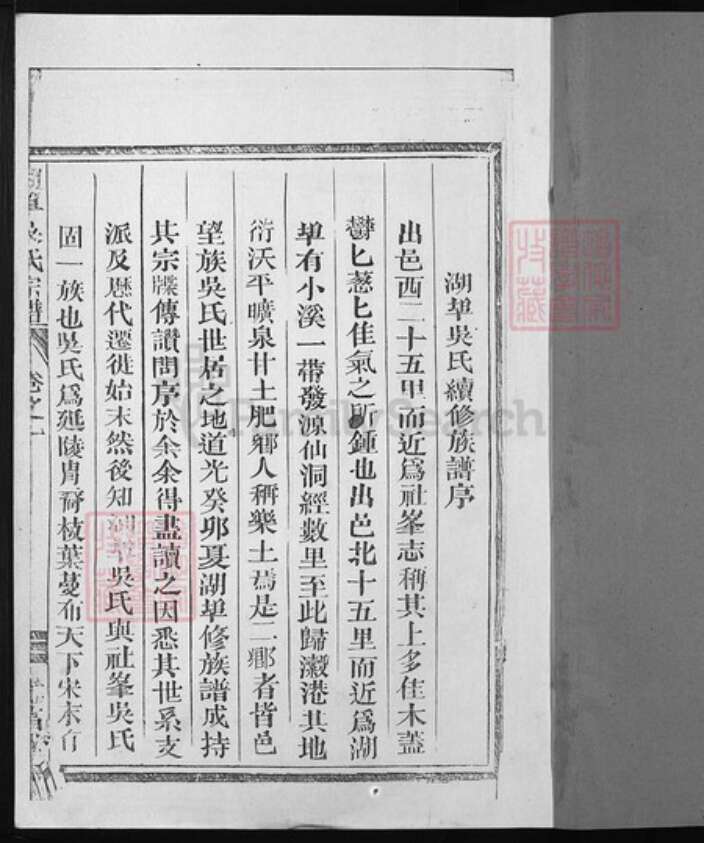 湖埠吳氏續修族譜序
出邑西二十五里而近爲社峯志稱其上多佳木蓋
鬱匕葱匕佳氣之所鍾也出邑北十五里而近爲湖
埠有小溪一帶發源仙洞經數里至此歸瀫港其地
衍沃平曠泉甘土肥鄉人稱樂土焉是二鄉者皆邑
望族吳氏世居之地道光癸卯夏湖埠修族譜成持
其宗牒傳讚問序於余余得盡讀之因悉其世系支
派及歷代遷徙始末然後知湖埠吳氏與社峯吳氏
固一族也吳氏爲延陵胄裔枝葉蔓布天下宋末有
湖埠吳氏宗譜
卷之一
FamilySearch